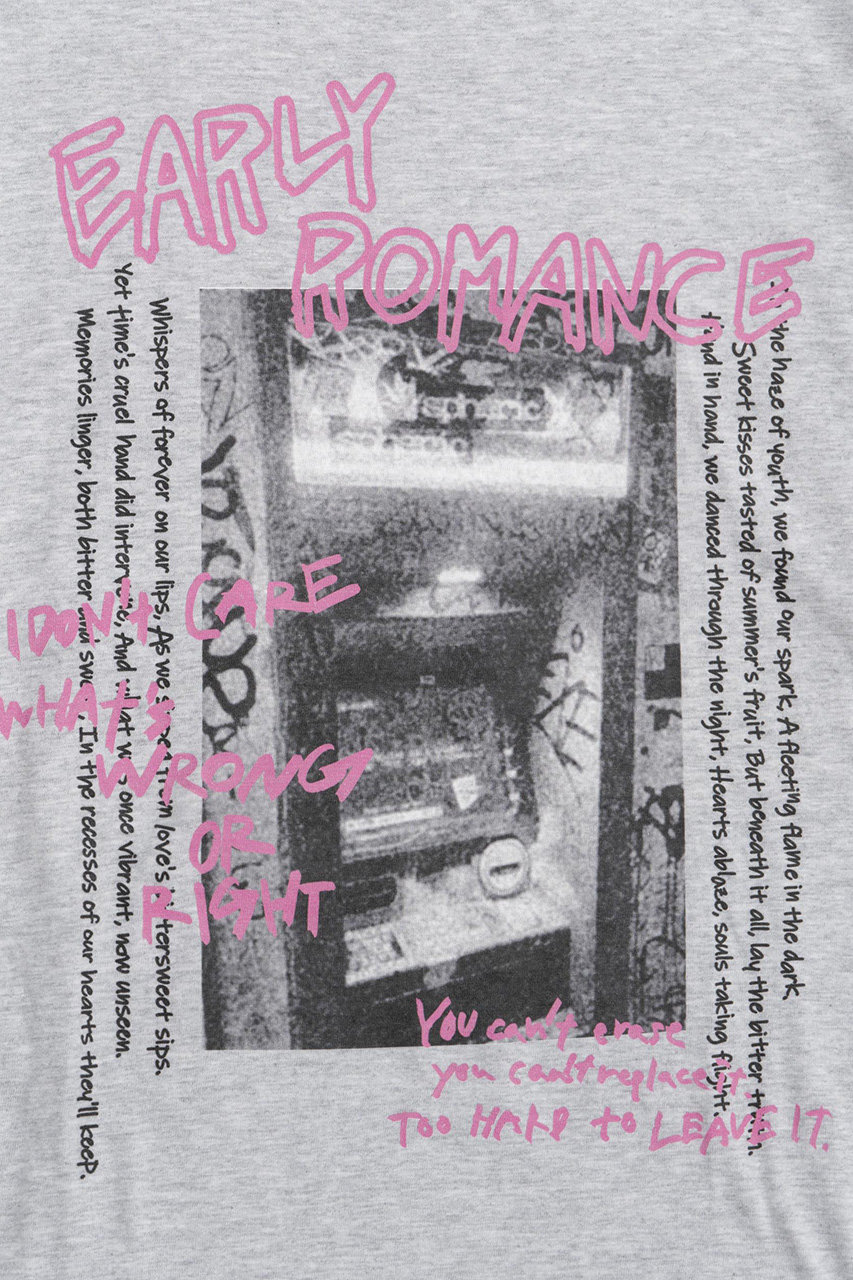 EARLY
ROMANCE
the haze of youth, we found our spark, A fleeting flame in the dark,
Sweet kisses tasted of summer's fruit, But beneath it all, lay the bitter truth.
Hand in hand, we danced through the night, Hearts ablaze, souls taking flight.
spheric
spheric
Whispers of forever on our lips, As we from love's bittersweet sips.
Yet time's cruel hand did intervene, And what was once vibrant, now unseen.
Memories linger, both bitter and sweet, In the recesses of our hearts they'll keep.
I DON'T CARE
WHAT'S
WRONG
OR
RIGHT
You can't erase
you can't replace it.
TOO HARD to LEAVE IT.